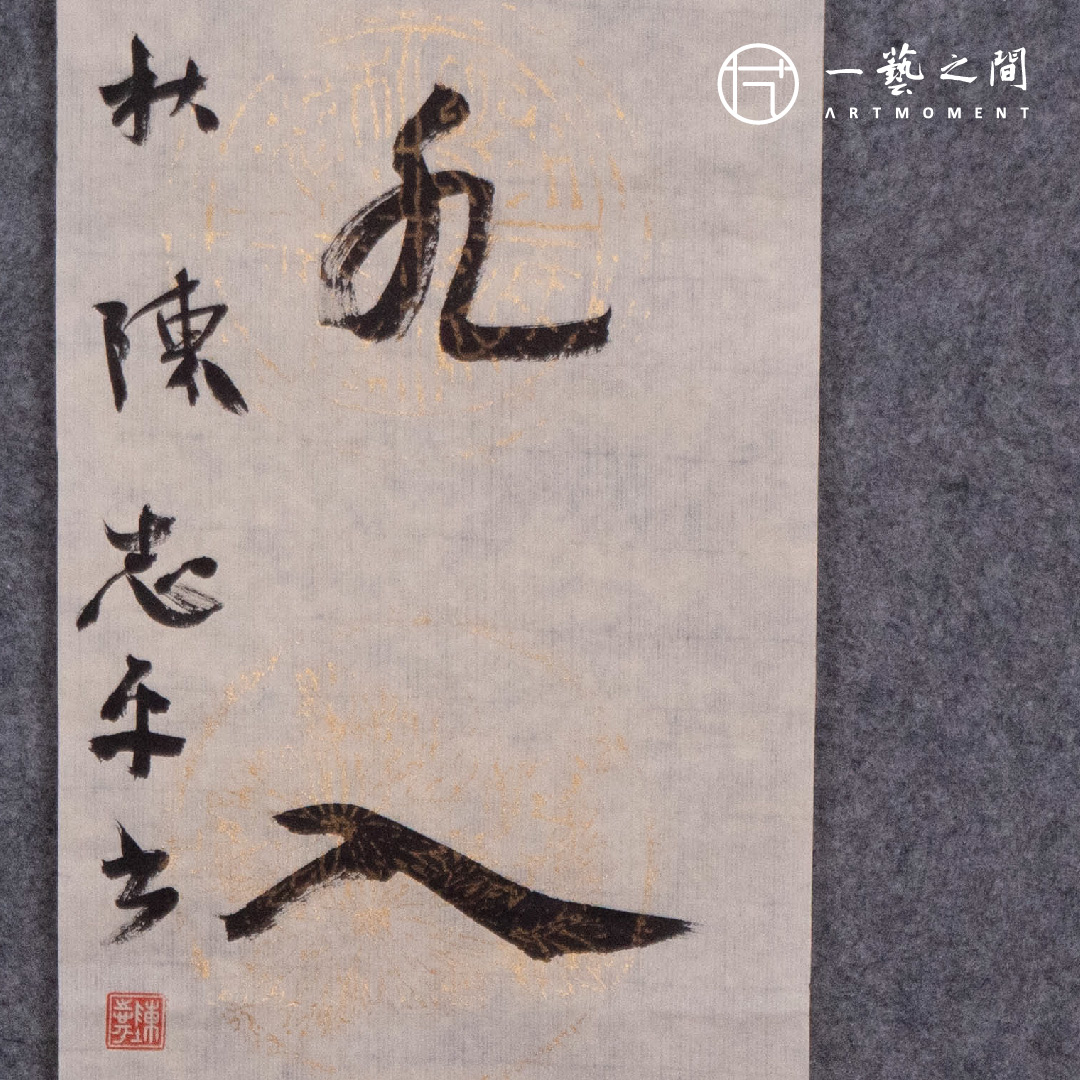 一藝之間
ARTMOMENT
九入
秋陳志平書